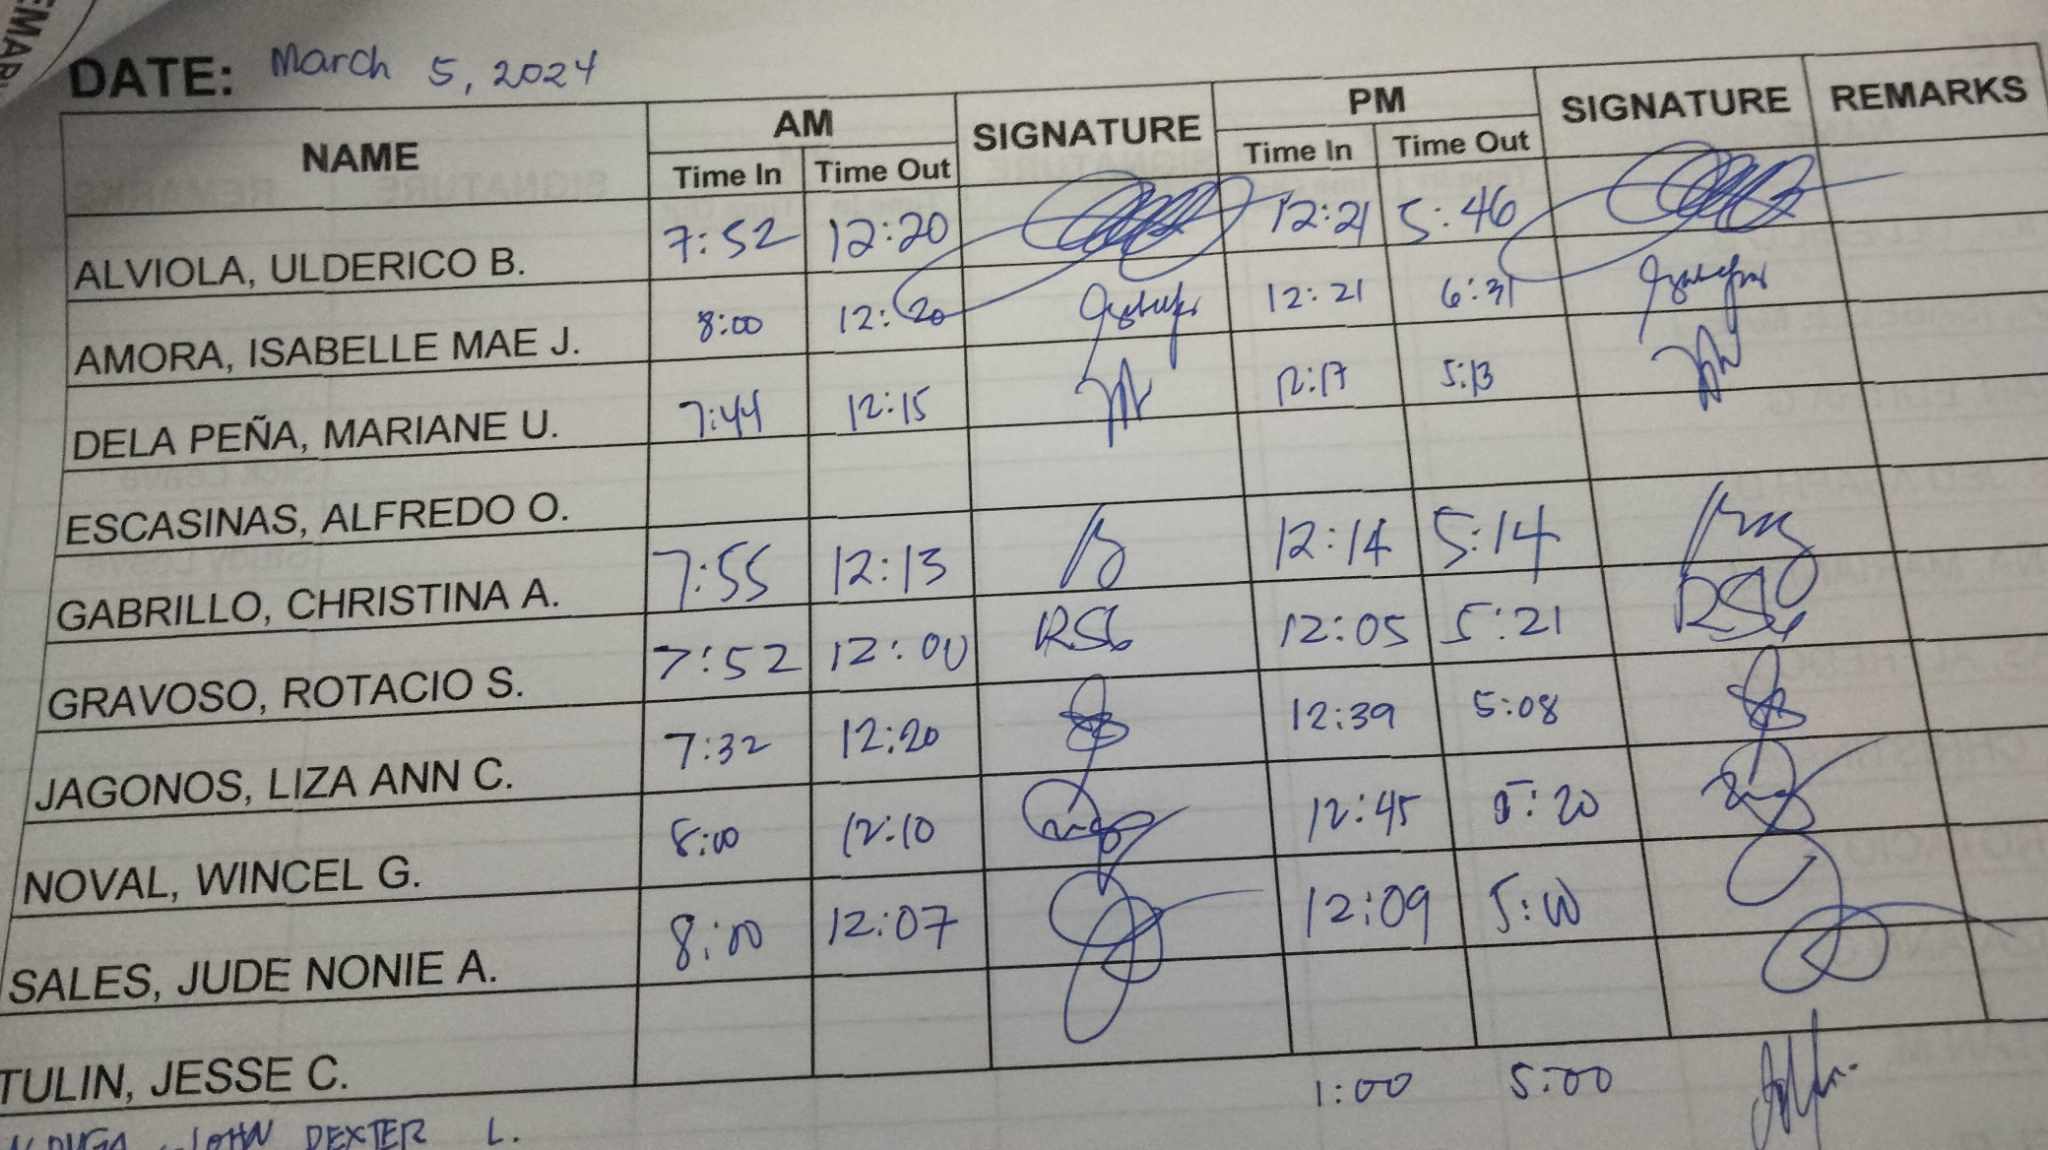 DATE: March 5, 2024
NAME AM SIGNATURE PM SIGNATURE REMARKS
Time In Time Out Time In Time Out
ALVIOLA, ULDERICO B. 7:52 12:20 12:21 5:46
AMORA, ISABELLE MAE J. 8:00 12:20 12:21 6:31
DELA PEÑA, MARIANE U. 7:44 12:15 12:17 5:13
ESCASINAS, ALFREDO O.
GABRILLO, CHRISTINA A. 7:55 12:13 12:14 5:14
GRAVOSO, ROTACIO S. 7:52 12:00 RSG 12:05 5:21 RSG
JAGONOS, LIZA ANN C. 7:32 12:20 12:39 5:08
NOVAL, WINCEL G. 8:00 12:10 12:45 5:20
SALES, JUDE NONIE A. 8:00 12:07 12:09 5:00
TULIN, JESSE C.
JOHN DEXTER L. 1:00 5:00